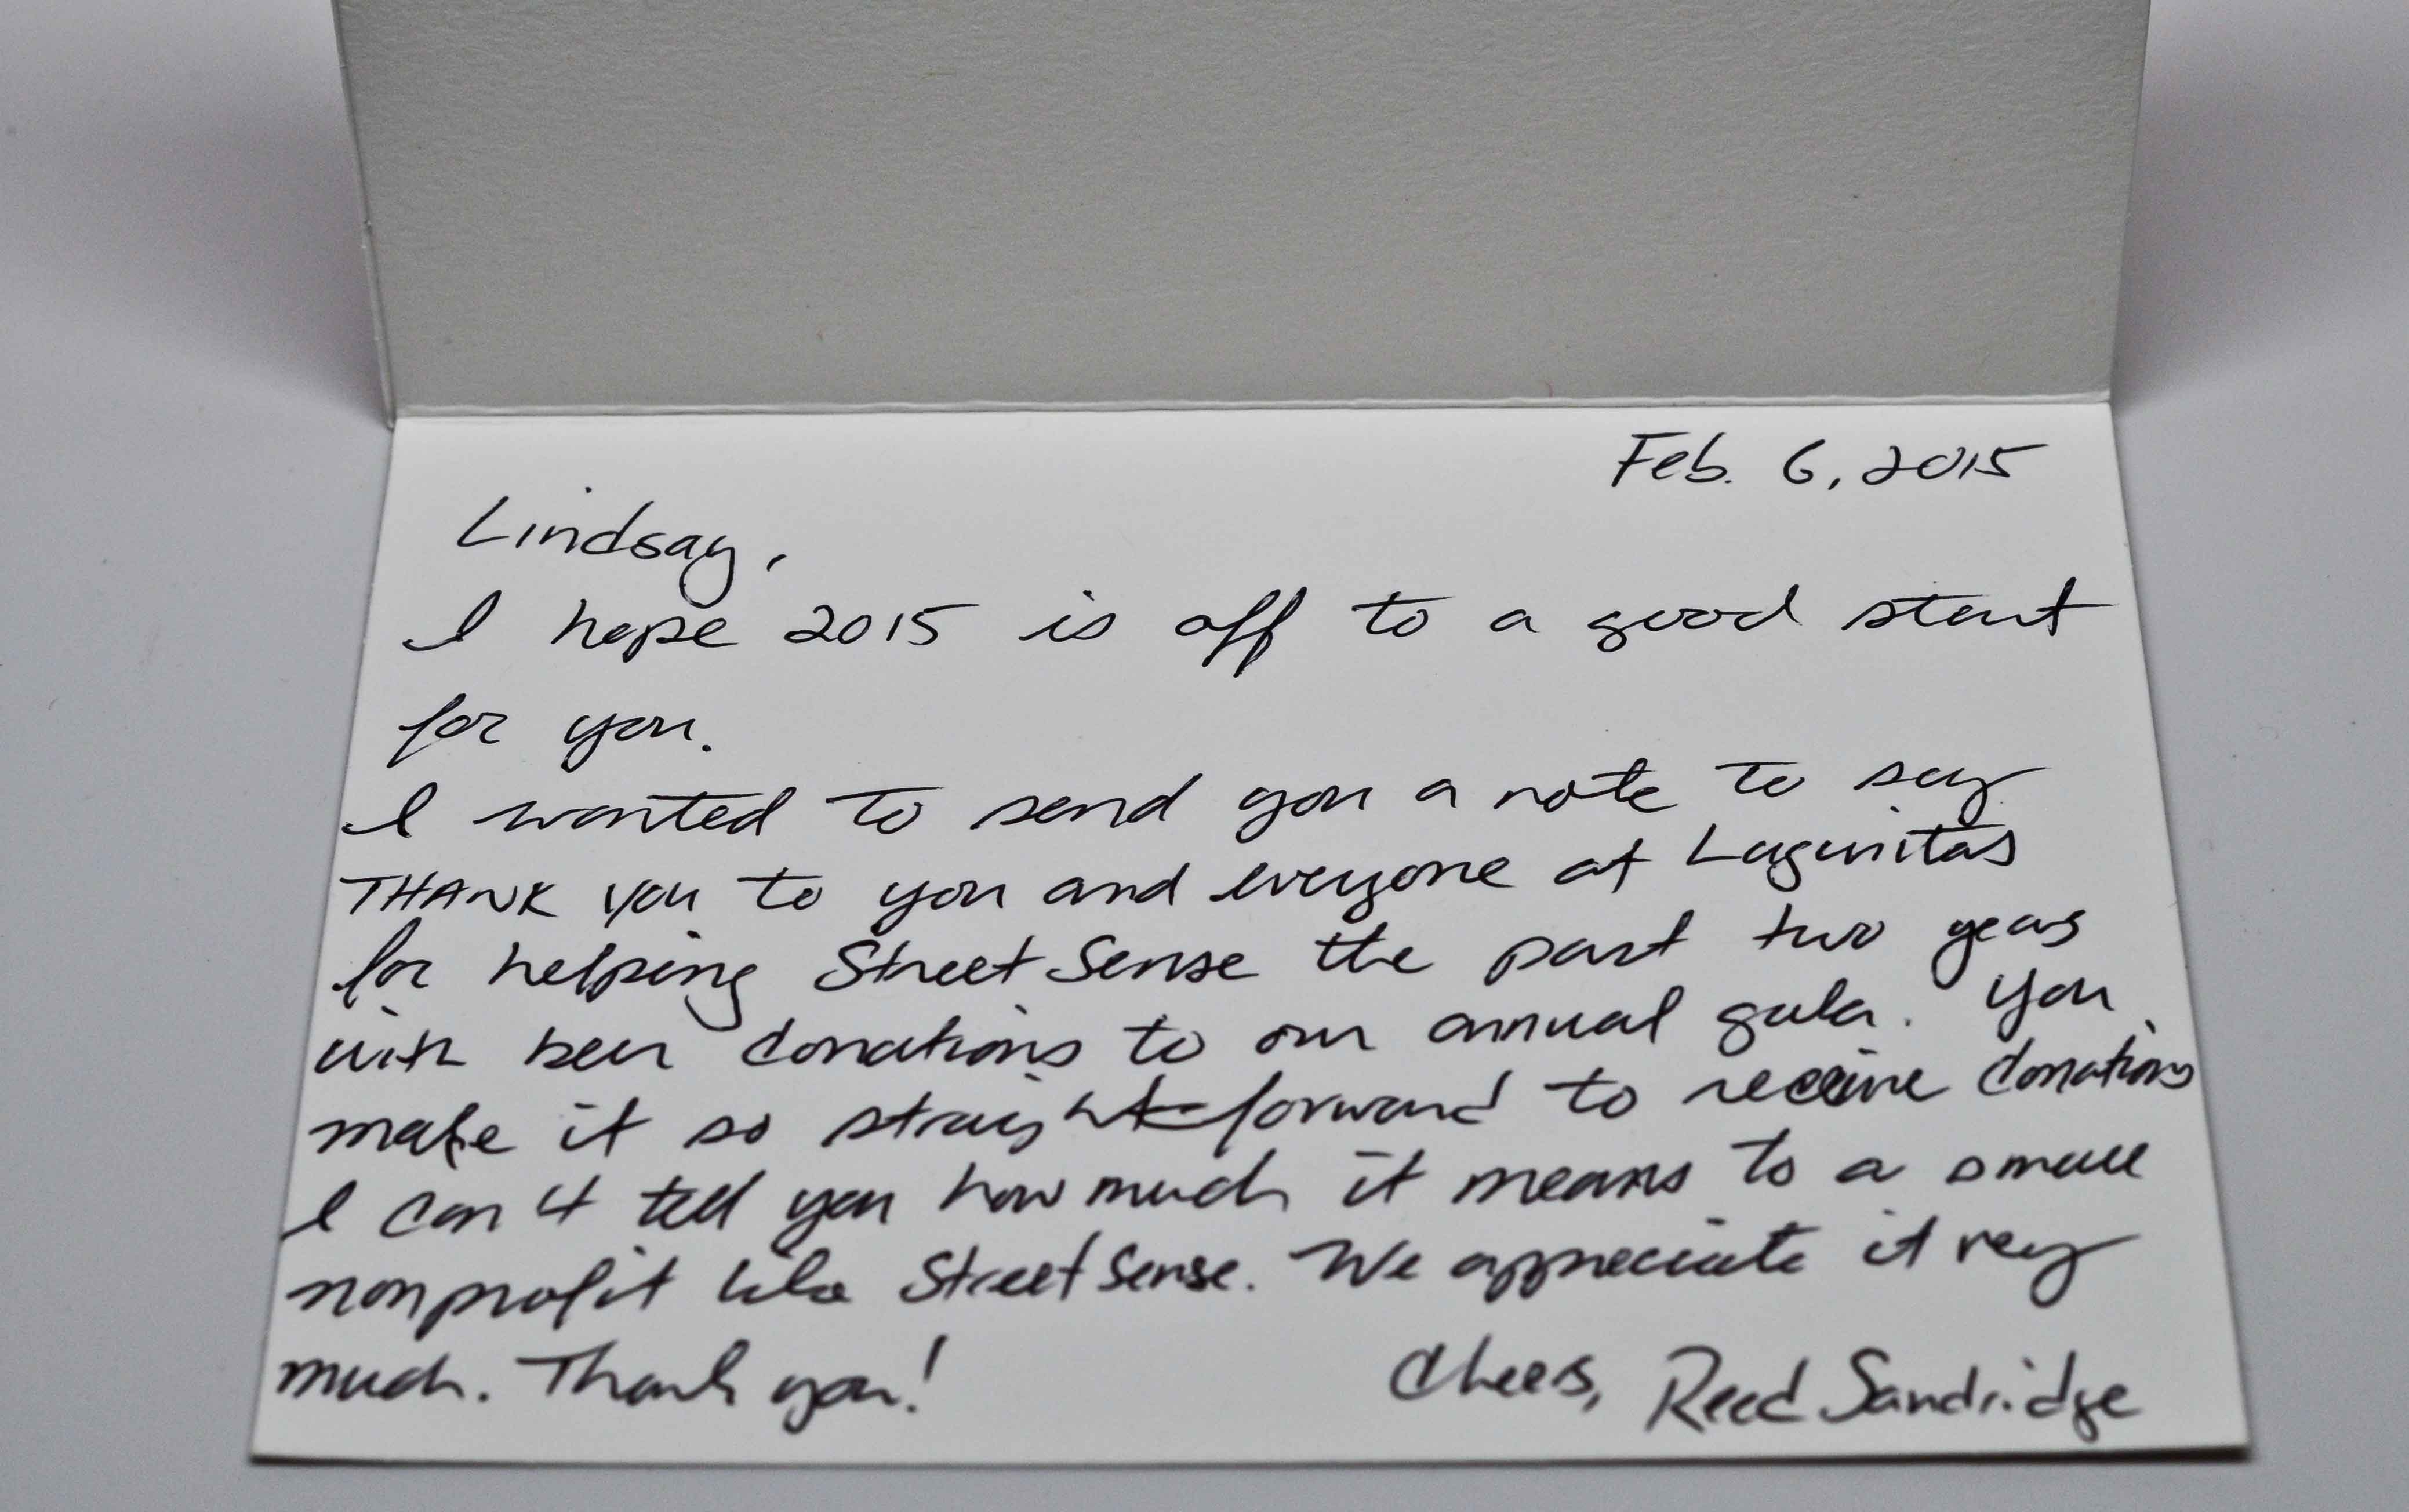 Feb. 6, 2015
Lindsay,
I hope 2015 is off to a good start
for you.
I wanted to send you a note to say
THANK you to you and everyone at Lagunitas
for helping Street Sense the past two years
with beer donations to our annual gala. You
make it so straightforward to receive donations
I can't tell you how much it means to a small
nonprofit like Street Sense. We appreciate it very
much. Thank you!
Cheers, Reed Sandridge